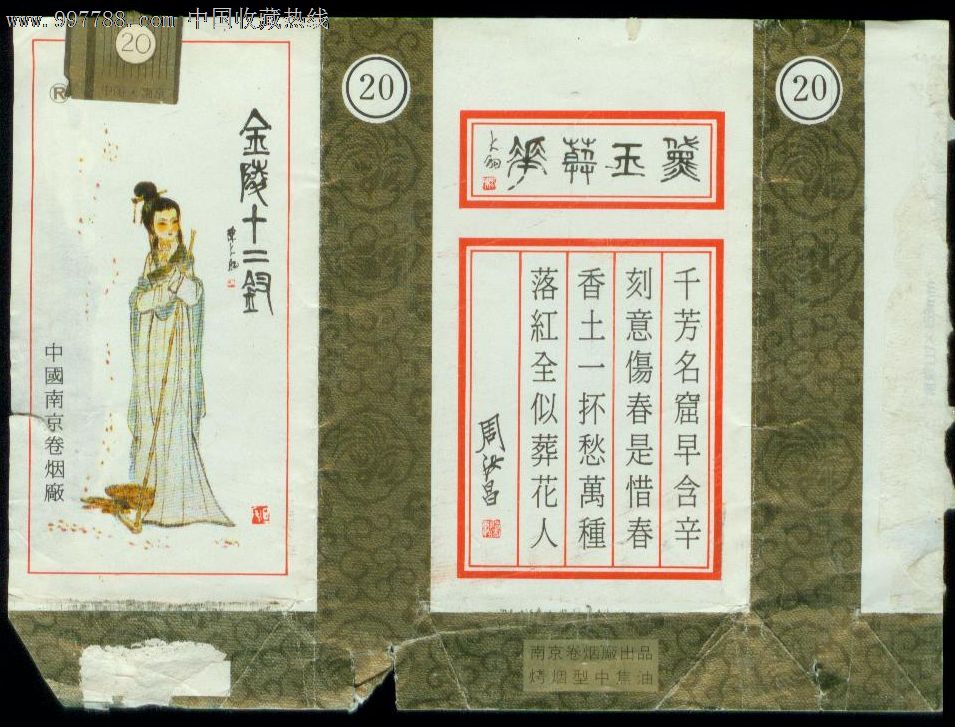 www.997788.com 中国收藏热线
20
®
金陵十二釵
中國南京卷烟廠
20
黛玉葬花
千芳名窟早含辛
刻意傷春是惜春
香土一抔愁萬種
落紅全似葬花人
周汝昌
20
南京卷烟廠出品
烤烟型中焦油